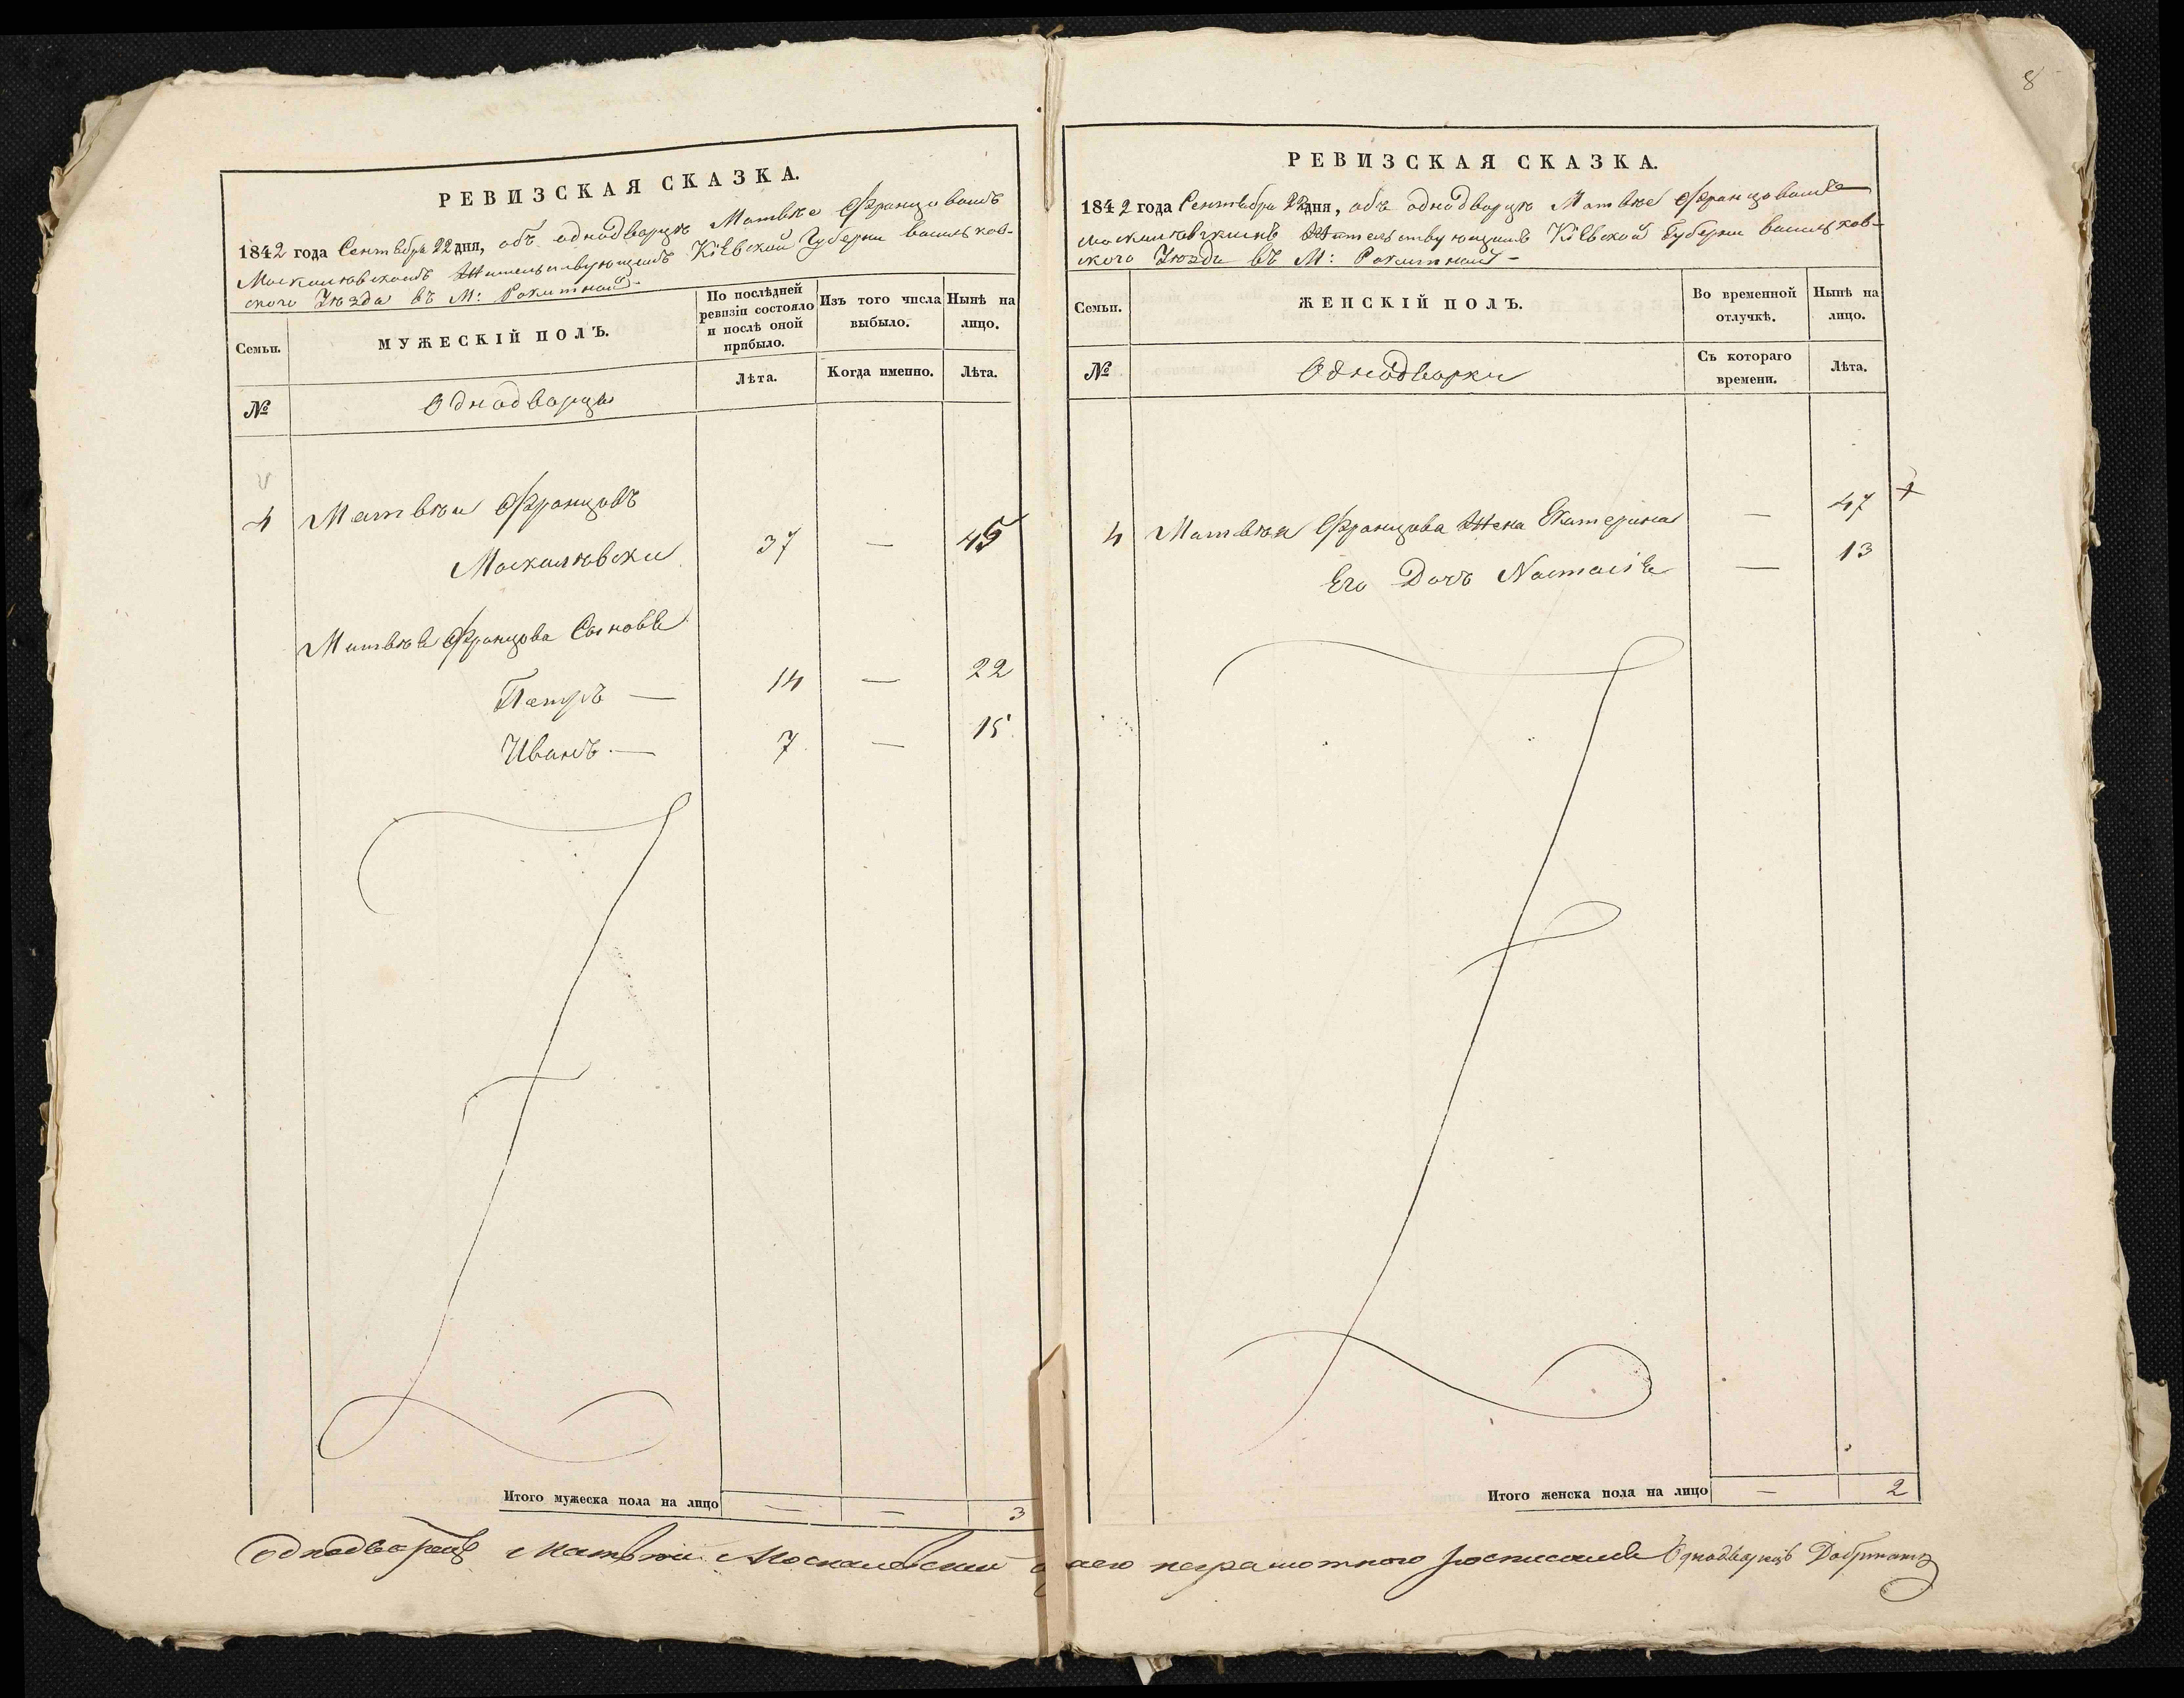 РЕВИЗСКАЯ СКАЗКА.
1842 года Сентября 22 дня, объ однодворце Матвѣе Францовомъ
Москалювскомъ Жительствующемъ Кіевской Губерни васильков-
ского Уюзда въ М: Рокитной-
Семьи.
МУЖЕСКІЙ ПОЛЪ.
По послѣдней ревизіи состояло и послѣ оной прибыло.
Изъ того числа выбыло.
Нынѣ на лицо.
№
Однодворцы
Лѣта.
Когда именно.
Лѣта.
4 Матвюи Францовъ
Москалювски 37 — 45
Матвюя Францова Сыновя
Петръ — 14 — 22
Иванъ — 7 — 15
Итого мужеска пола на лицо — — 3
8
РЕВИЗСКАЯ СКАЗКА.
1842 года Сентября 22 дня, объ однодворцю Матвюе Францовомъ
Москалювскимъ Жительствующимъ Кіевской Губерни васильков-
ского Уюзда въ М: Рокитной-
Семьи.
ЖЕНСКІЙ ПОЛЪ.
Во временной отлучкѣ.
Нынѣ на лицо.
№
Однодворки
Съ котораго времени.
Лѣта.
4 Матвюя Францова Жена Екатерина — 47
Его Дочъ Настасія — 13
Итого женска пола на лицо — 2
Однодворецъ Матвѣи Москалевский а
заего неграмотного росписался Однодворецъ